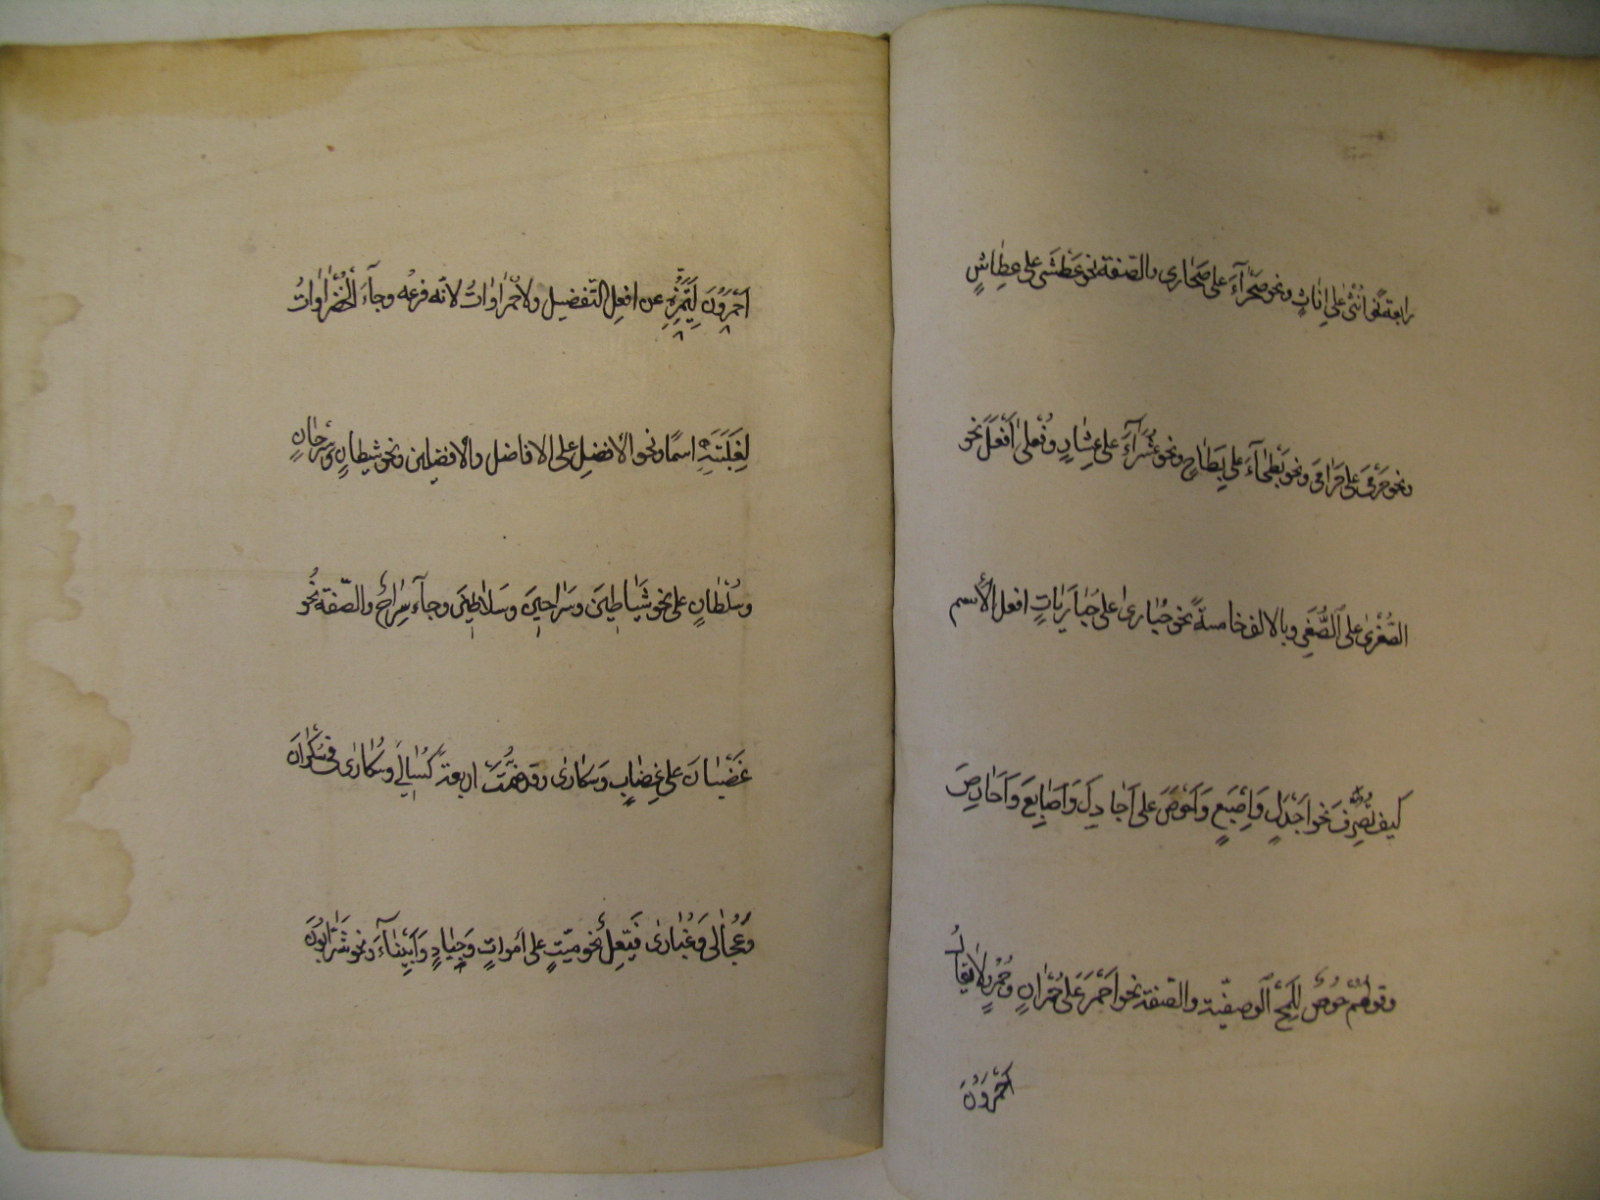 رابعة نحو أنثى على إناثٍ ونحو صحرآءَ على صحارى والصّفة نحو عَطْشى على عِطاشٍ
ونحو حَرْمى على حَرامى ونحو بَطحآءَ على بِطَاحٍ ونحو عُشَرآءَ على عِشارٍ وفُعلى أَفْعلَ نحو
الصُّغْرى على الصُّغَرِ وبالالف خامسةً نحو حُبارى على حُبَارَيَاتٍ افعل الأسم
كيف تصرّفَ نحو اَجْدَلٍ وَاِصْبَعٍ وَاَحْوَصَ على اَجادِلَ وَاَصَابِعَ وَاَحَاوِصَ
وقولهُمْ حُوصٌ لِلَمْحِ الوصفيّة والصّفة نحو اَحْمَرَ على حُمْرَانٍ وحُمْرٍ ولا يقالُ
اَحْمَرُونَ
اَحْمَرُونَ لِتَمَيُّزِهِ عن افعلِ التّفضيل ولا حَمْرَاوَاتُ لانّه فرعُه وجآءَ الْخَضْرَاوَاتُ
لِغَلَبَتِهِ اسمًا ونحو الأفضلِ على الافاضل والأفضلين ونحو شيطانٍ وسِرْحَانٍ
وسُلْطَانٍ على نحو شَيَاطِينَ وسَرَاحِينَ وسَلاَطِينَ وجآءَ سِرَاحٌ والصّفة نحوُ
غَضْبَانَ على غِضَابٍ وسَكارى وقد ضُمَّتْ اربعةٌ كُسَالَى وسُكَارى في سَكْرَانَ
وعُجَالى وغُيَارى فَيْعِلٌ نحو ميّتٍ على اَمواتٍ وَجِيَادٍ وَاَبْيِنَآءَ ونحو شَرَّابُونَ